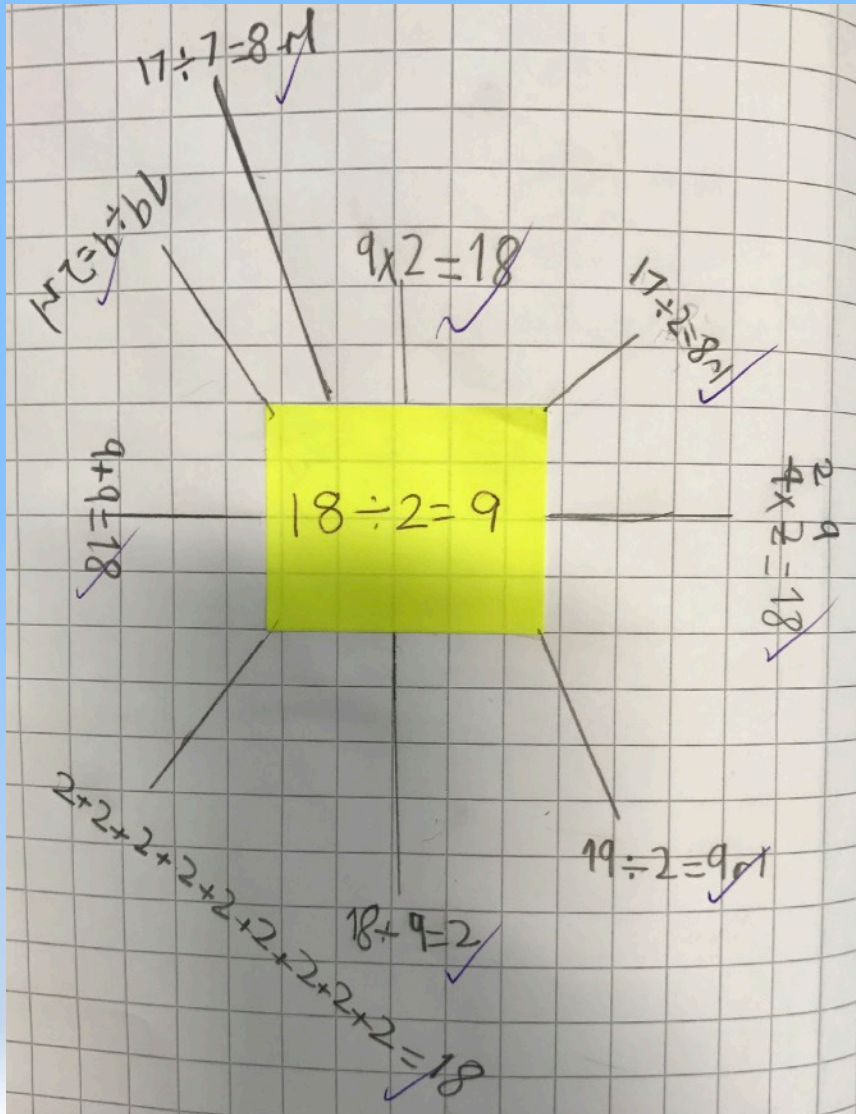 17÷7=8 r1
19÷9=2 r1
9x2=18
17÷2=8r1
9+9=18
18÷2=9
2 9
9x2=18
2+2+2+2+2+2+2+2+2=18
18÷9=2
19÷2=9r1